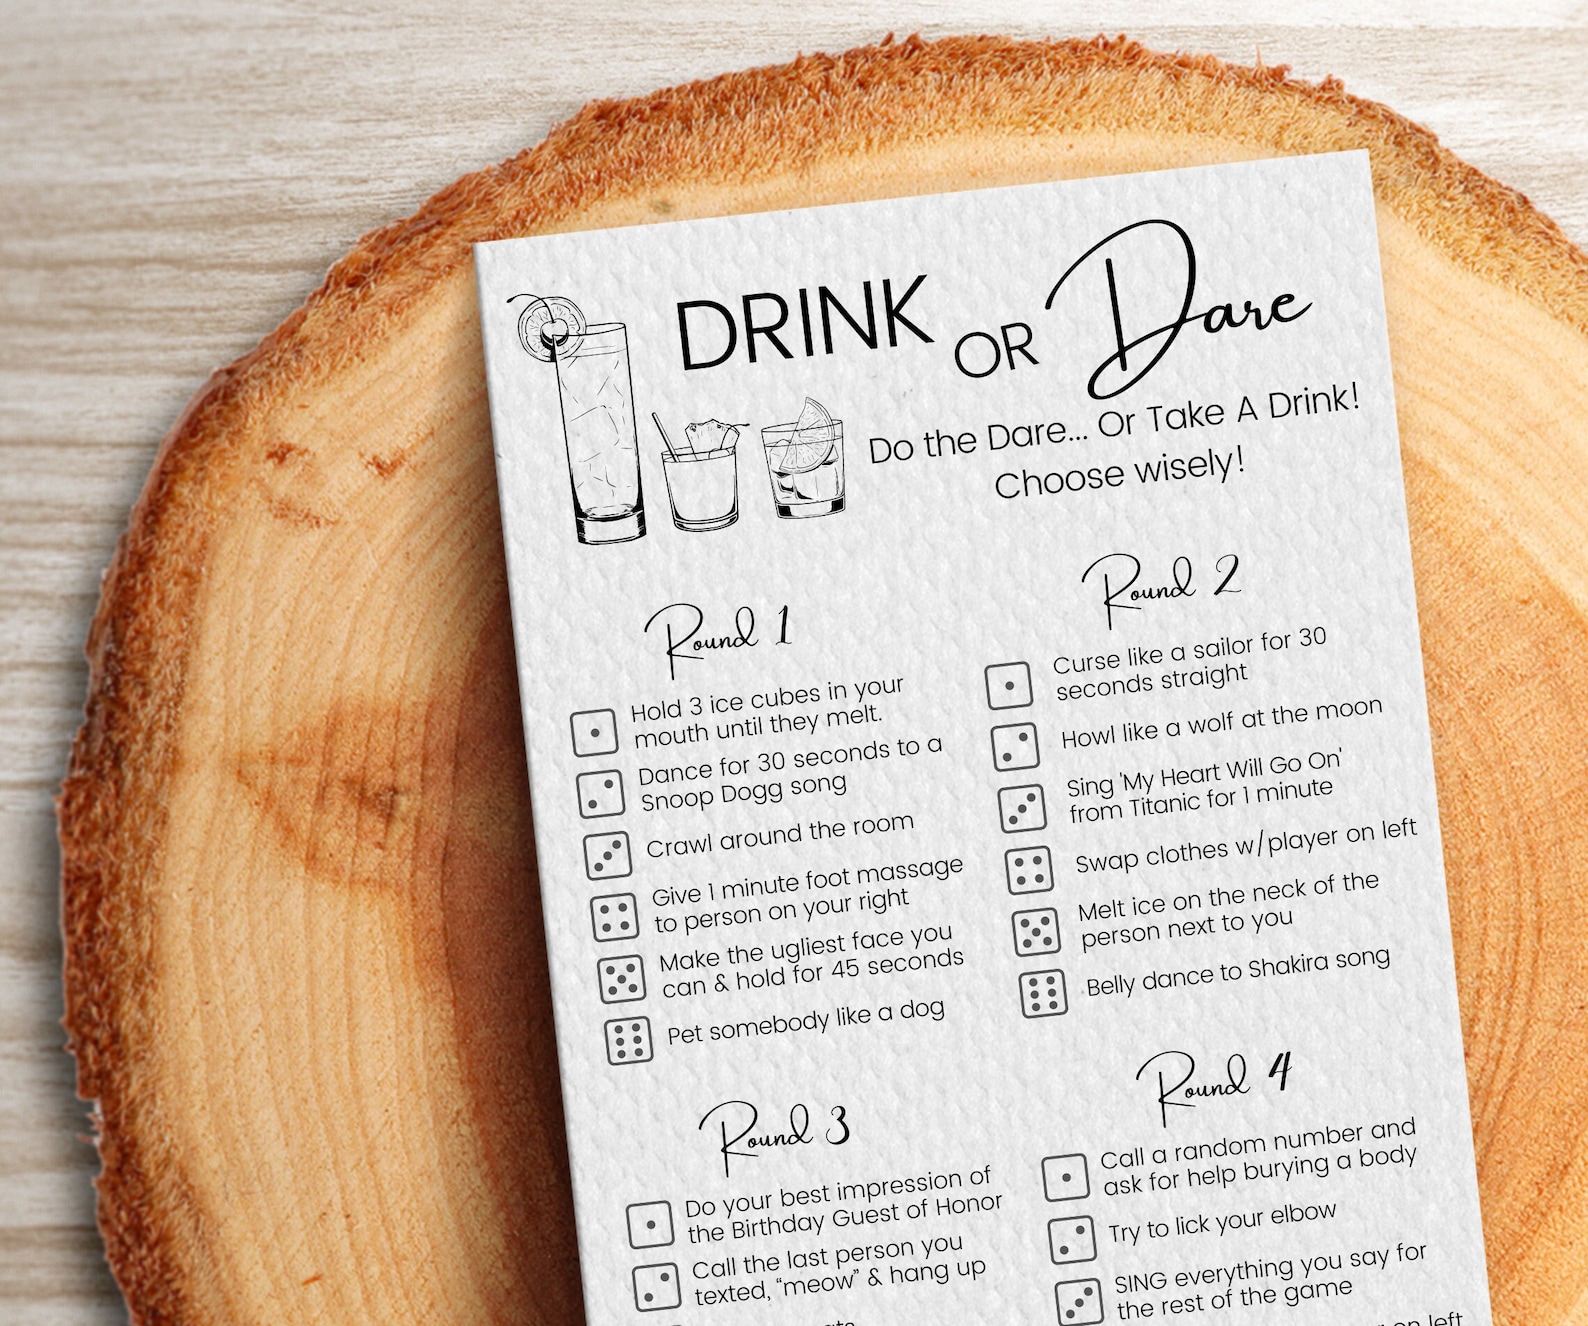 DRINK OR Dare
Do the Dare... Or Take A Drink!
Choose wisely!
Round 1
Hold 3 ice cubes in your
mouth until they melt.
Dance for 30 seconds to a
Snoop Dogg song
Crawl around the room
Give 1 minute foot massage
to person on your right
Make the ugliest face you
can & hold for 45 seconds
Pet somebody like a dog
Round 2
Curse like a sailor for 30
seconds straight
Howl like a wolf at the moon
Sing 'My Heart Will Go On'
from Titanic for 1 minute
Swap clothes w/player on left
Melt ice on the neck of the
person next to you
Belly dance to Shakira song
Round 3
Do your best impression of
the Birthday Guest of Honor
Call the last person you
texted, “meow” & hang up
Round 4
Call a random number and
ask for help burying a body
Try to lick your elbow
SING everything you say for
the rest of the game
on left